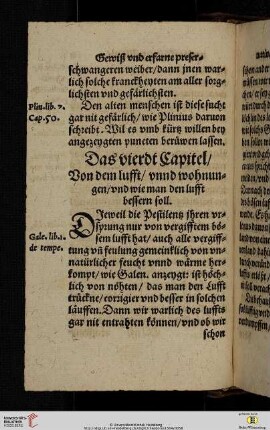 Gewiß vnd erfarne preser-
schwangeren weiber/dann jnen war-
lich solche kranckheyten am aller sorg-
lichsten vnd gefärlichsten.
Plin. lib. 7.
Cap. 50.
Den alten menschen ist diese sucht
gar nit gefärlich/wie Plinius daruon
schreibt. Wil es vmb kürtz willen bey
angezeygten puncten berüwen lassen.
Das vierdt Capitel/
Von dem lufft/vnnd wohnun-
gen/vnd wie man den lufft
bessern soll.
Gale. lib. 1.
de tempe.
DJeweil die Pestilentz jhren vr-
sprung nur von vergifftem bö-
sem lufft hat/auch alle vergiff-
tung vñ feulung gemeincklich von vn-
natürlicher feucht vnnd wärme her-
kompt/wie Galen. anzeygt: ist höch-
lich von nöhten/das man den Lufft
trückne/corrigier vnd besser in solchen
läuffen. Dann wir warlich des luffts
gar nit entrahten können/vnd ob wir
schon